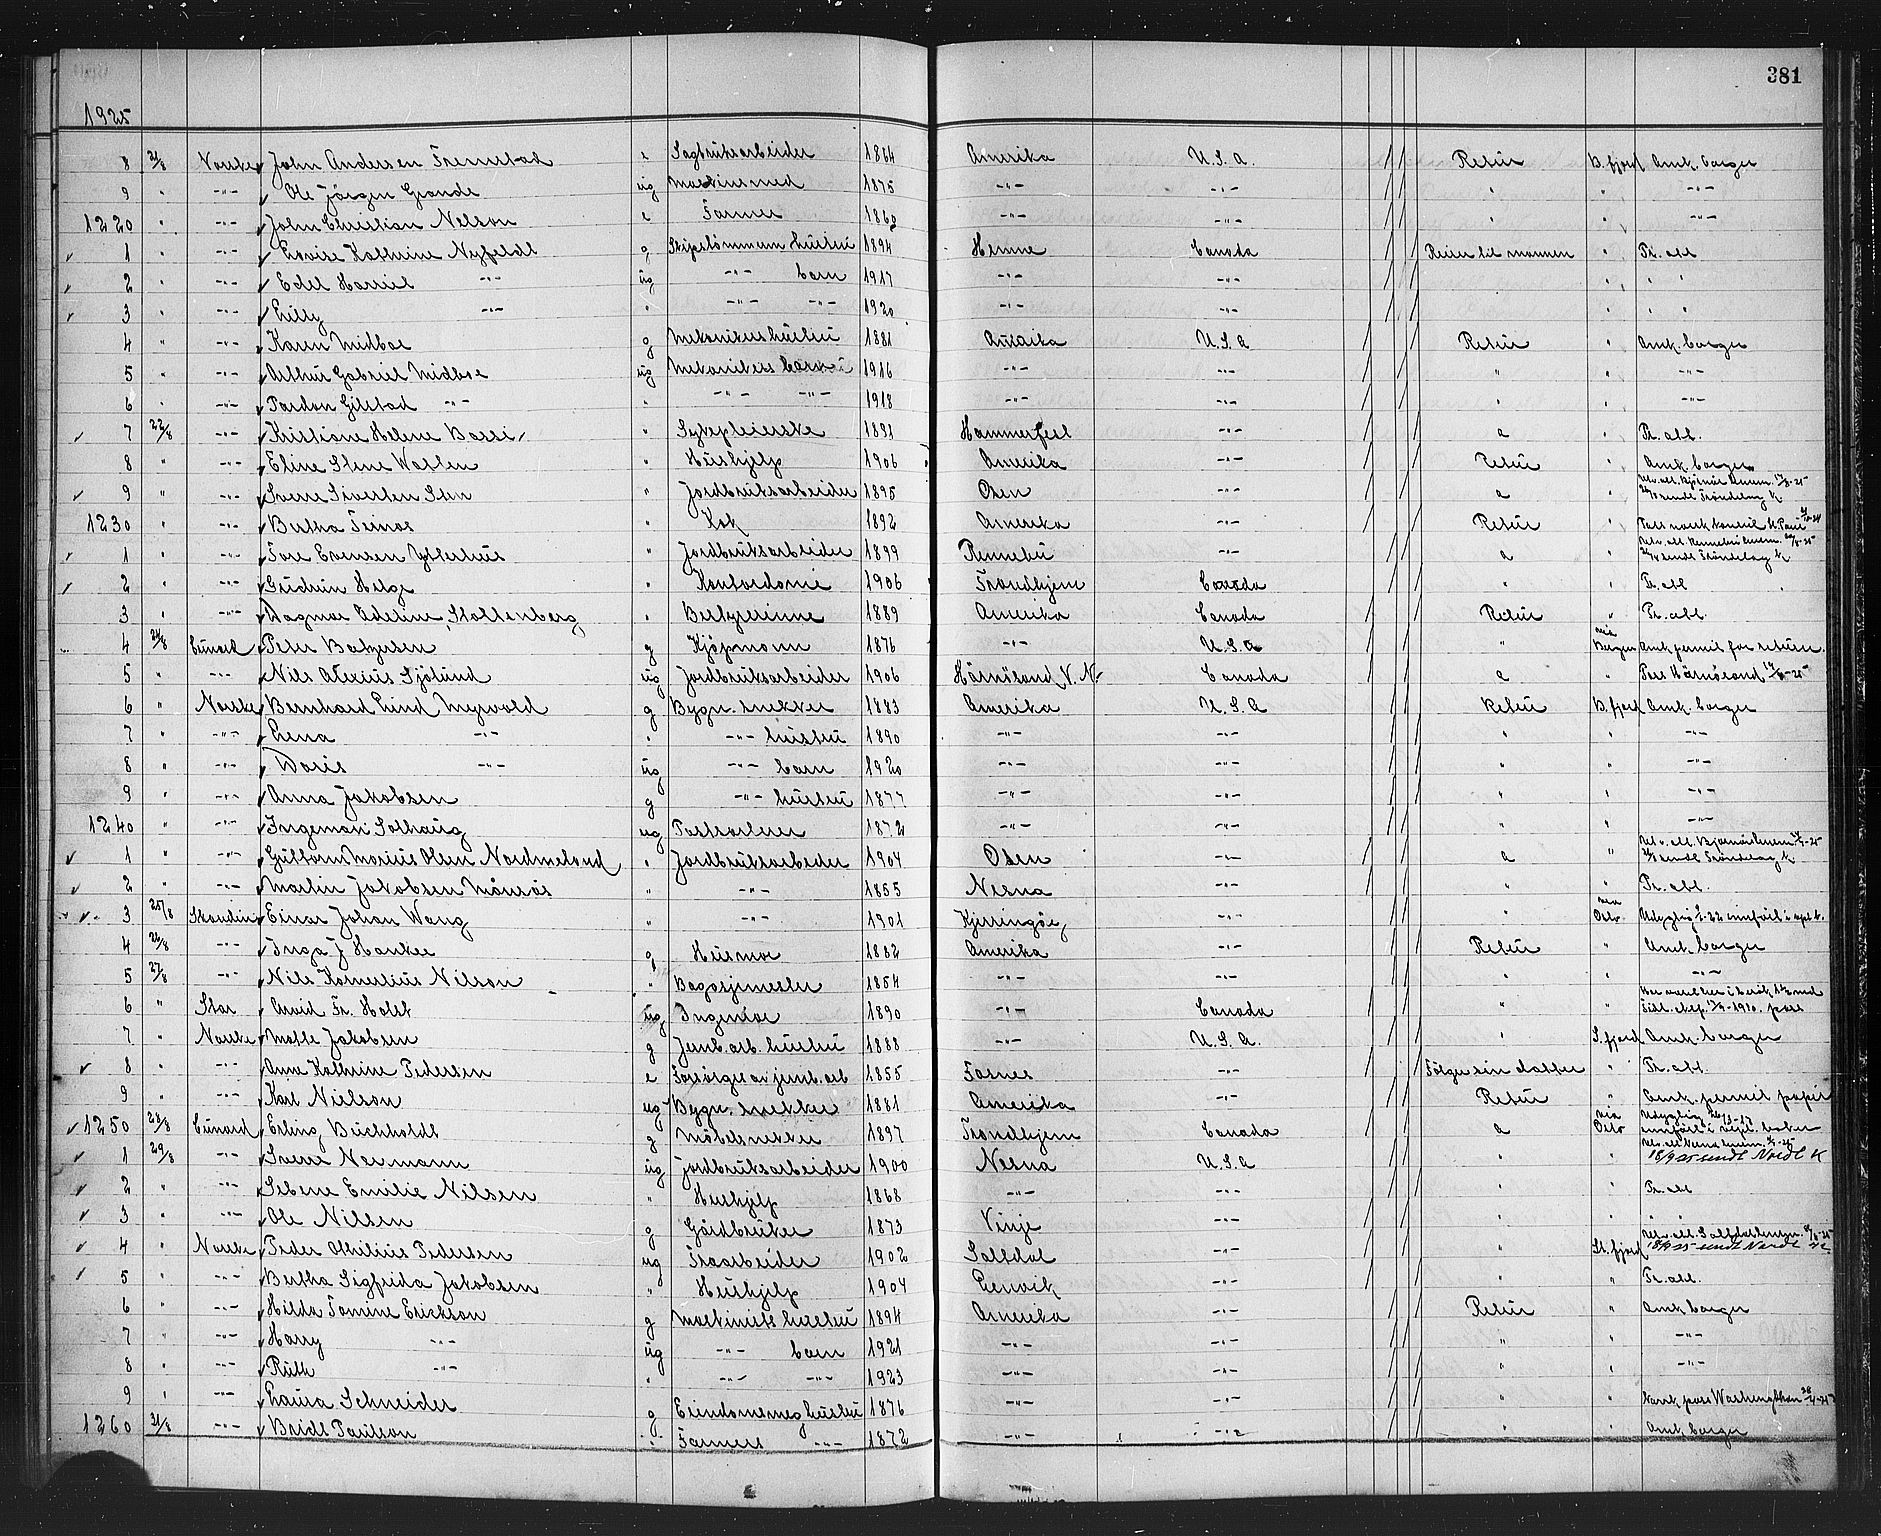 381
1925
8 21/8 Norske John Andersen Fremstad e Sagbruksarbeider 1864 Amerika U.S.A. Retur B.fjord Amk. borger
9 " -"- Ole Jörgen Grande ug Maskinsmed 1875 -"- -"- " " -"-
1220 " -"- John Christian Nelson e Farmer -"- -"- " " -"-
1 " -"- Kathrine Nyfeldt g Skipstömmerm. hustru 1894 Hemne Canada Reiser til mannen " Tr. att
2 " -"- Edel Harriet -"- ug -"- barn 1917 -"- -"- " " "
3 " -"- -"- " -"- -"- 1920 -"- -"- " " "
4 " -"- Karen Midboe g Mekanikers hustru 1881 Amerika U.S.A Retur " Amk. borger
5 " -"- Arthur Gabriel Midboe ug Mekanikers barn 1916 -"- -"- " " -"-
6 " -"- Gordon Gilstad -"- " -"- -"- 1918 -"- -"- " " -"-
7 22/8 -"- Kristiane Helene " Sykepleierske 1891 Hammerfest -"- a " Tr. att.
8 " -"- Eline Stene " Hushjelp 1906 Amerika -"- Retur " Amk. borger
9 " -"- Sverre Sivertsen Sten " Jordbruksarbeider 1895 Osen -"- a "
1230 " -"- Bertha " Kok 1892 Amerika -"- Retur " Pass norsk konsul St. Paul
1 " -"- Tore Evensen Ytterhus " Jordbruksarbeider 1899 Rennebu -"- a "
2 " -"- Gudrun Helge " Kontordame 1906 Trondhjem Canada " " Tr. att
3 " -"- Dagmar Adeline Stoltenberg " Bestyrerinne 1889 Amerika Canada Retur " Tr. att.
4 24/8 Cunard Peter Balgersen g Kjöpmann 1876 -"- U.S.A " via Bergen Amk permit for return.
5 " -"- Nils Alexius Sjölund ug Jordbruksarbeider 1906 Härnösand V.N. Canada a " Pass Härnösand
6 " Norske Bernhard Lund Myrvold g Bygn. snekker 1883 Amerika U.S.A Retur B.fjord Amk. borger
7 " -"- Lena -"- " -"- hustru 1890 -"- -"- " " -"-
8 " -"- Doris -"- ug -"- barn 1920 -"- -"- " " -"-
9 " -"- Anna Jakobsen g -"- hustru 1877 -"- -"- " " -"-
1240 " -"- Ingeman Solhaug ug 1872 -"- -"- " " -"-
1 " -"- Guttorm Marius Olsen Nordmeland " Jordbruksarbeider 1904 Osen -"- a "
2 " -"- Martin Jakobsen Månsås " -"- 1855 Nesna -"- " " Tr. att.
3 25/8 Skandin Einar Johan Wang " -"- 1901 Kjerringöy -"- " via Oslo
4 26/8 -"- Inga J Hanken g Husmor 1882 Amerika -"- Retur " Amk. borger
5 27/8 -"- Nils Kornelius Nilson " 1854 -"- -"- " " -"-
6 " Star Arvid Fr. Holst ug Ingeniör 1890 -"- Canada " "
7 " Norske Jakobsen g Jernb. arb. hustru 1888 -"- U.S.A. " S.fjord Amk. borger
8 " -"- Anne Kathrine Pedersen e Forsörget av jernb. arb 1855 Fosnes -"- Fölger sin datter " Tr. att.
9 " -"- Karl Nielson ug Bygn. snekker 1881 Amerika -"- Retur " Amk. permit papir
1250 28/8 Cunard Erling Buchholdt g Möbelsnekker 1897 Trondhjem Canada a via Oslo
1 29/8 -"- Sverre Nermann ug jordbruksarbeider 1900 Nesna U.S.A " " 18/9 25 sendt Nordl K
2 " -"- Emilie Nilsen " Hushjelp 1868 -"- -"- " " Tr. att
3 " -"- Ole Nilsen g Gårdbruker 1873 Vinje -"- " " "
4 " Norske Peder Pedersen ug Skoarbeider 1902 Saltdal -"- " St.fjord
5 " -"- Bertha Sigfrida Jakobsen " Hushjelp 1904 Lenvik -"- " " Tr. att.
6 " -"- Hilda Tomine Erickson g Maskinists hustru 1894 Amerika -"- Retur " Amk borger
7 " -"- Harry -"- ug -"- barn 1921 -"- -"- " " -"-
8 " -"- Ruth -"- " -"- -"- 1923 -"- -"- " " -"-
9 " -"- Laura Schneider g Eiendomsmegl. hustru 1876 -"- -"- " " Norsk pass Washington
1260 31/8 -"- Bridt Paulson " Farmers -"- 1872 -"- -"- " " Amk borger